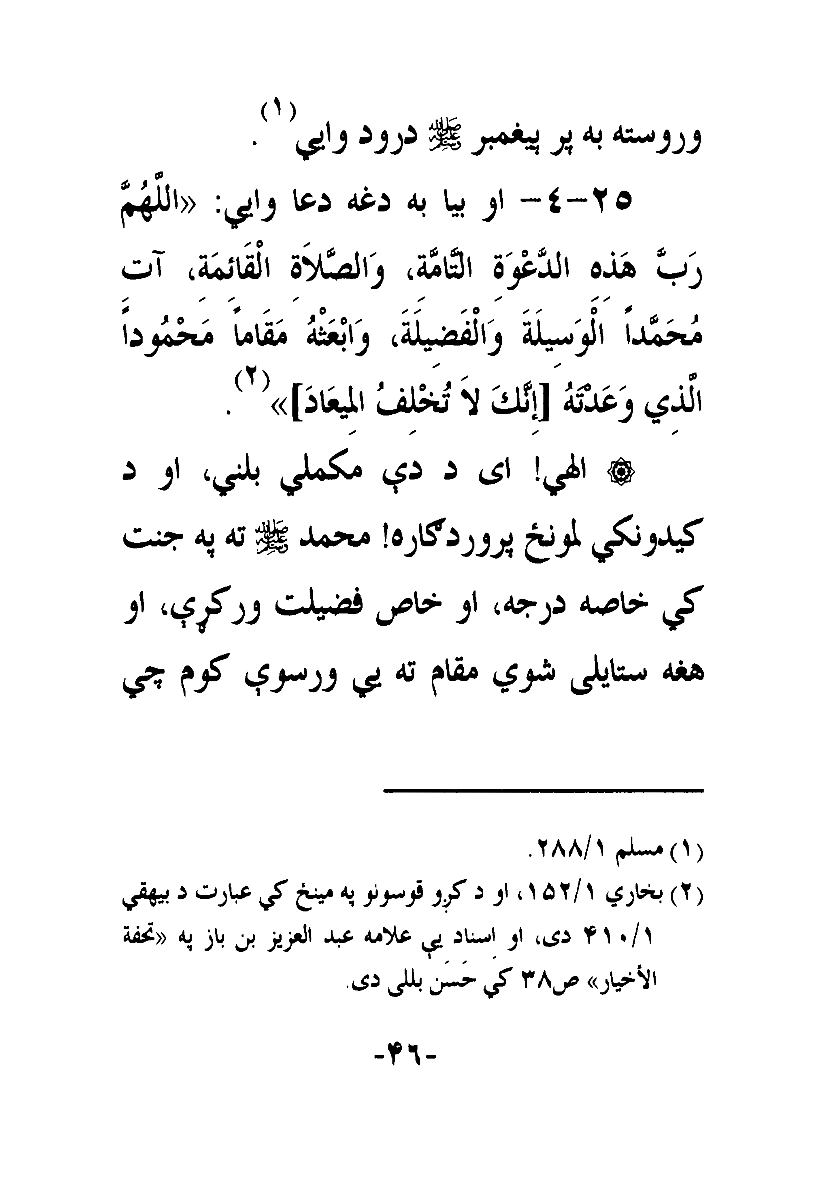 وروسته به پر پيغمبر ﷺ درود وايي(۱).
۲۵-٤- او بيا به دغه دعا وايي: «اللَّهُمَّ
رَبَّ هَذِهِ الدَّعْوَةِ التَّامَّةِ، وَالصَّلَاةِ الْقَائِمَةِ، آتِ
مُحَمَّداً الْوَسِيلَةَ وَالْفَضِيلَةَ، وَابْعَثْهُ مَقَاماً مَحْمُوداً
الَّذِي وَعَدْتَهُ [إِنَّكَ لَا تُخْلِفُ الْمِيعَادَ]»(۲).
۞ الهي! ای د دې مکملي بلني، او د
کيدونکي لمونځ پروردګاره! محمد ﷺ ته په جنت
کي خاصه درجه، او خاص فضيلت ورکړې، او
هغه ستايلی شوي مقام ته يې ورسوې کوم چي
(۱) مسلم ۲۸۸/۱.
(۲) بخاري ۱۵۲/۱، او د کږو قوسونو په مينځ کي عبارت د بيهقي
۴۱۰/۱ دی، او اِسناد يې علامه عبد العزيز بن باز په «تحفة
الأخيار» ص۳۸ کي حَسَن بللی دی.
-۴٦-